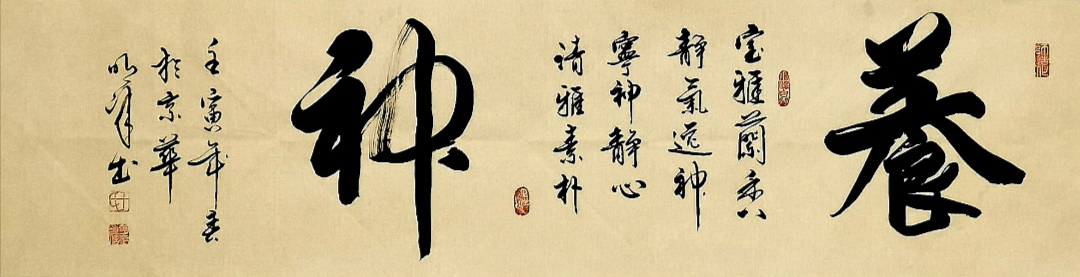 養
室雅蘭香
静氣逸神
寧神静心
清雅素朴
神
壬寅年春
於京華
明